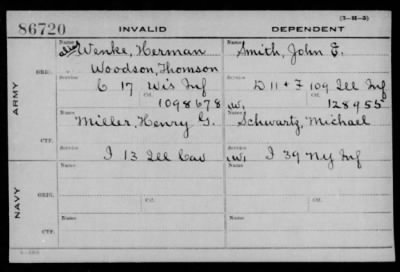 (3-H-3)
86720 INVALID DEPENDENT
Name Name
alias Wenke, Herman Smith, John F.
Woodson, Thomson
ARMY ORIG. Service Service
C 17 Wis Inf D 11 & F 109 Ill Inf
Ctf. Ctf.
1098678 W, 128955
Name Name
Miller, Henry G. Schwartz, Michael
CTF. Service Service
I 13 Ill Cav W, I 39 NY Inf
NAVY ORIG. Name Ctf. Name Ctf.
CTF. Name Name